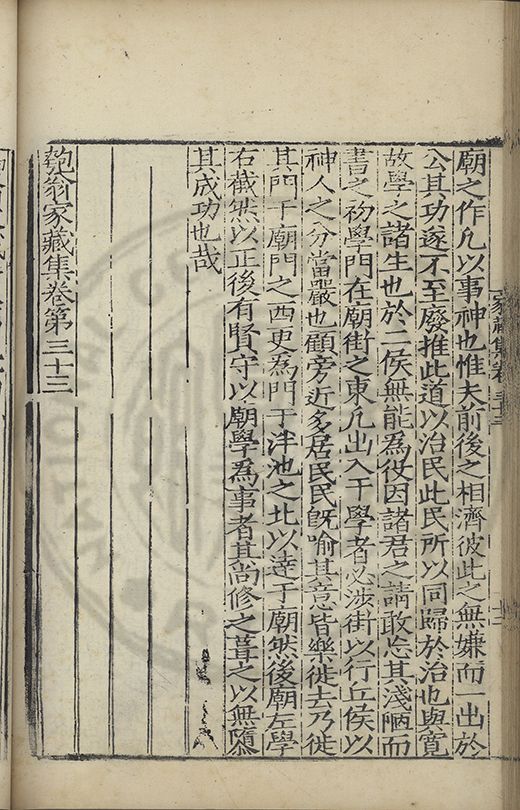 廟之作凡以事神也惟夫前後之相濟彼此之無嫌而一出於
公其功遂不至廢推此道以治民此民所以同歸於治也與寬
故學之諸生也於二侯無能為役因諸君之請敢忘其淺陋而
書之初學門在廟街之東凡出入于學者必涉街以行丘侯以
神人之分當嚴也顧旁近多居民民既喻其意皆樂徙去乃徙
其門于廟門之西更為門于泮池之北以達于廟然後廟左學
右截然以正後有賢守以廟學為事者其尚修之葺之以無隳
其成功也哉
匏翁家藏集卷第三十三
家藏集卷三十三